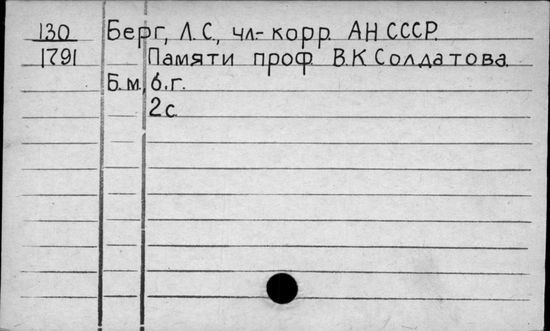 130 Берг, Л. С., чл-корр. АН СССР.
1791 Памяти проф. В. К Солдатова.
Б.м, б.г.
2 с.